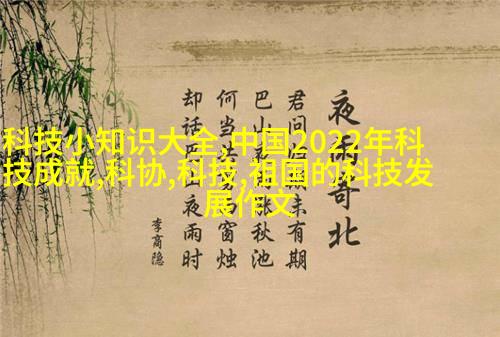 科技小知识大全,中国2022年科
技成就,科协,科技,祖国的科技发
展作文
夜雨寄北
君问未有期
巴山涨秋池
何当窗烛
却话巴山夜雨时
李商隐